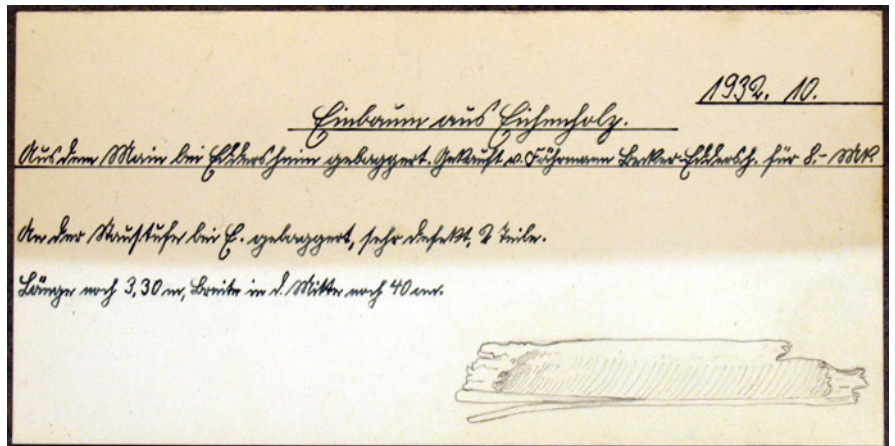 1932. 10.
Einbaum aus Eichenholz.
Aus dem Main bei Eddersheim gebaggert. Gekauft v. Fährmann Becker-Eddersh. für 8.- Mk
An der Staustufe bei E. gebaggert, sehr defekt, 2 Teile.
Länge noch 3,30 m, Breite in d. Mitte noch 40 cm.